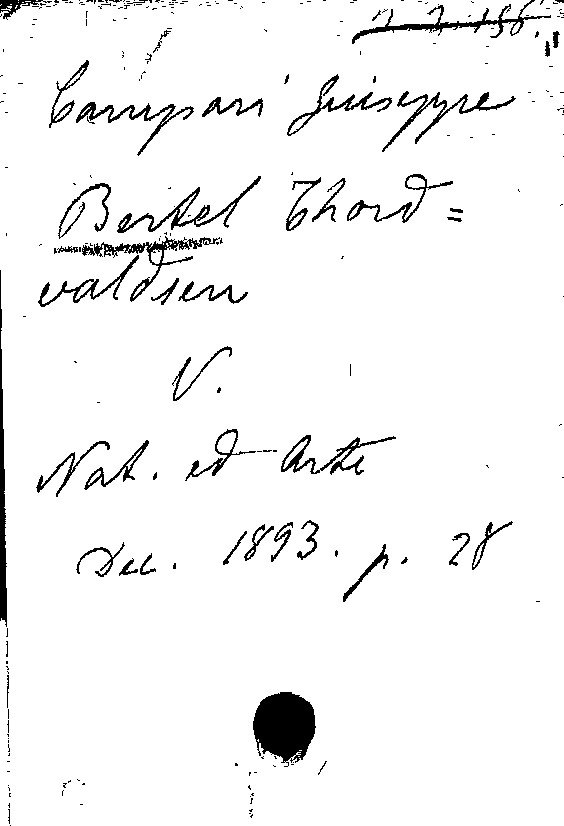 Campari Giuseppe
Bertel Thord=
valdsen
V.
Nat. ed Arte
Dec. 1893. p. 28